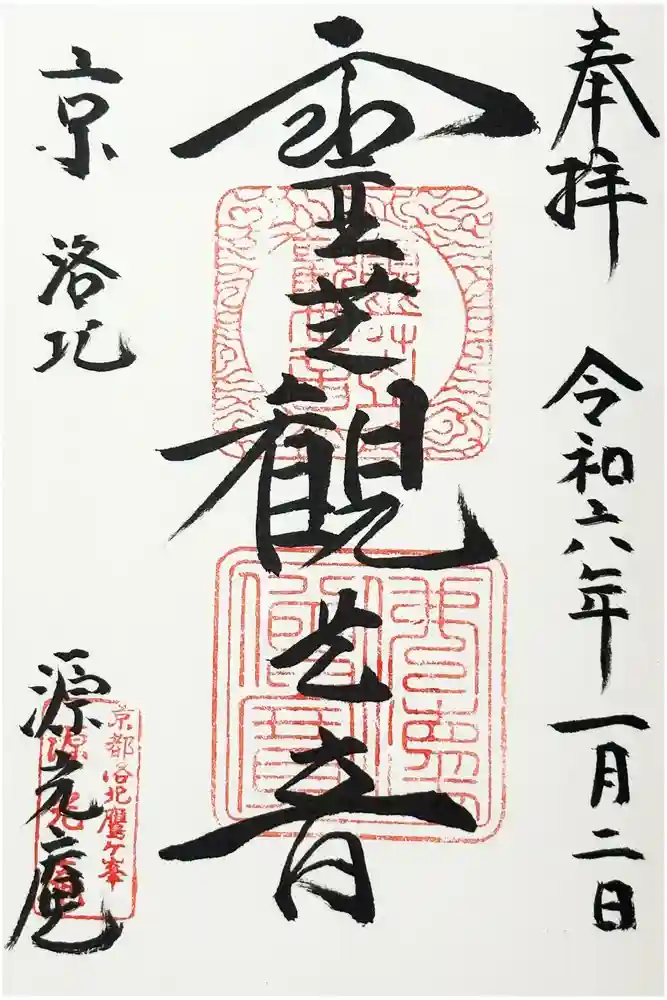 奉拝 令和六年一月二日
霊芝観世音
京 洛北
源光庵
京都洛北鷹ヶ峯
源光庵